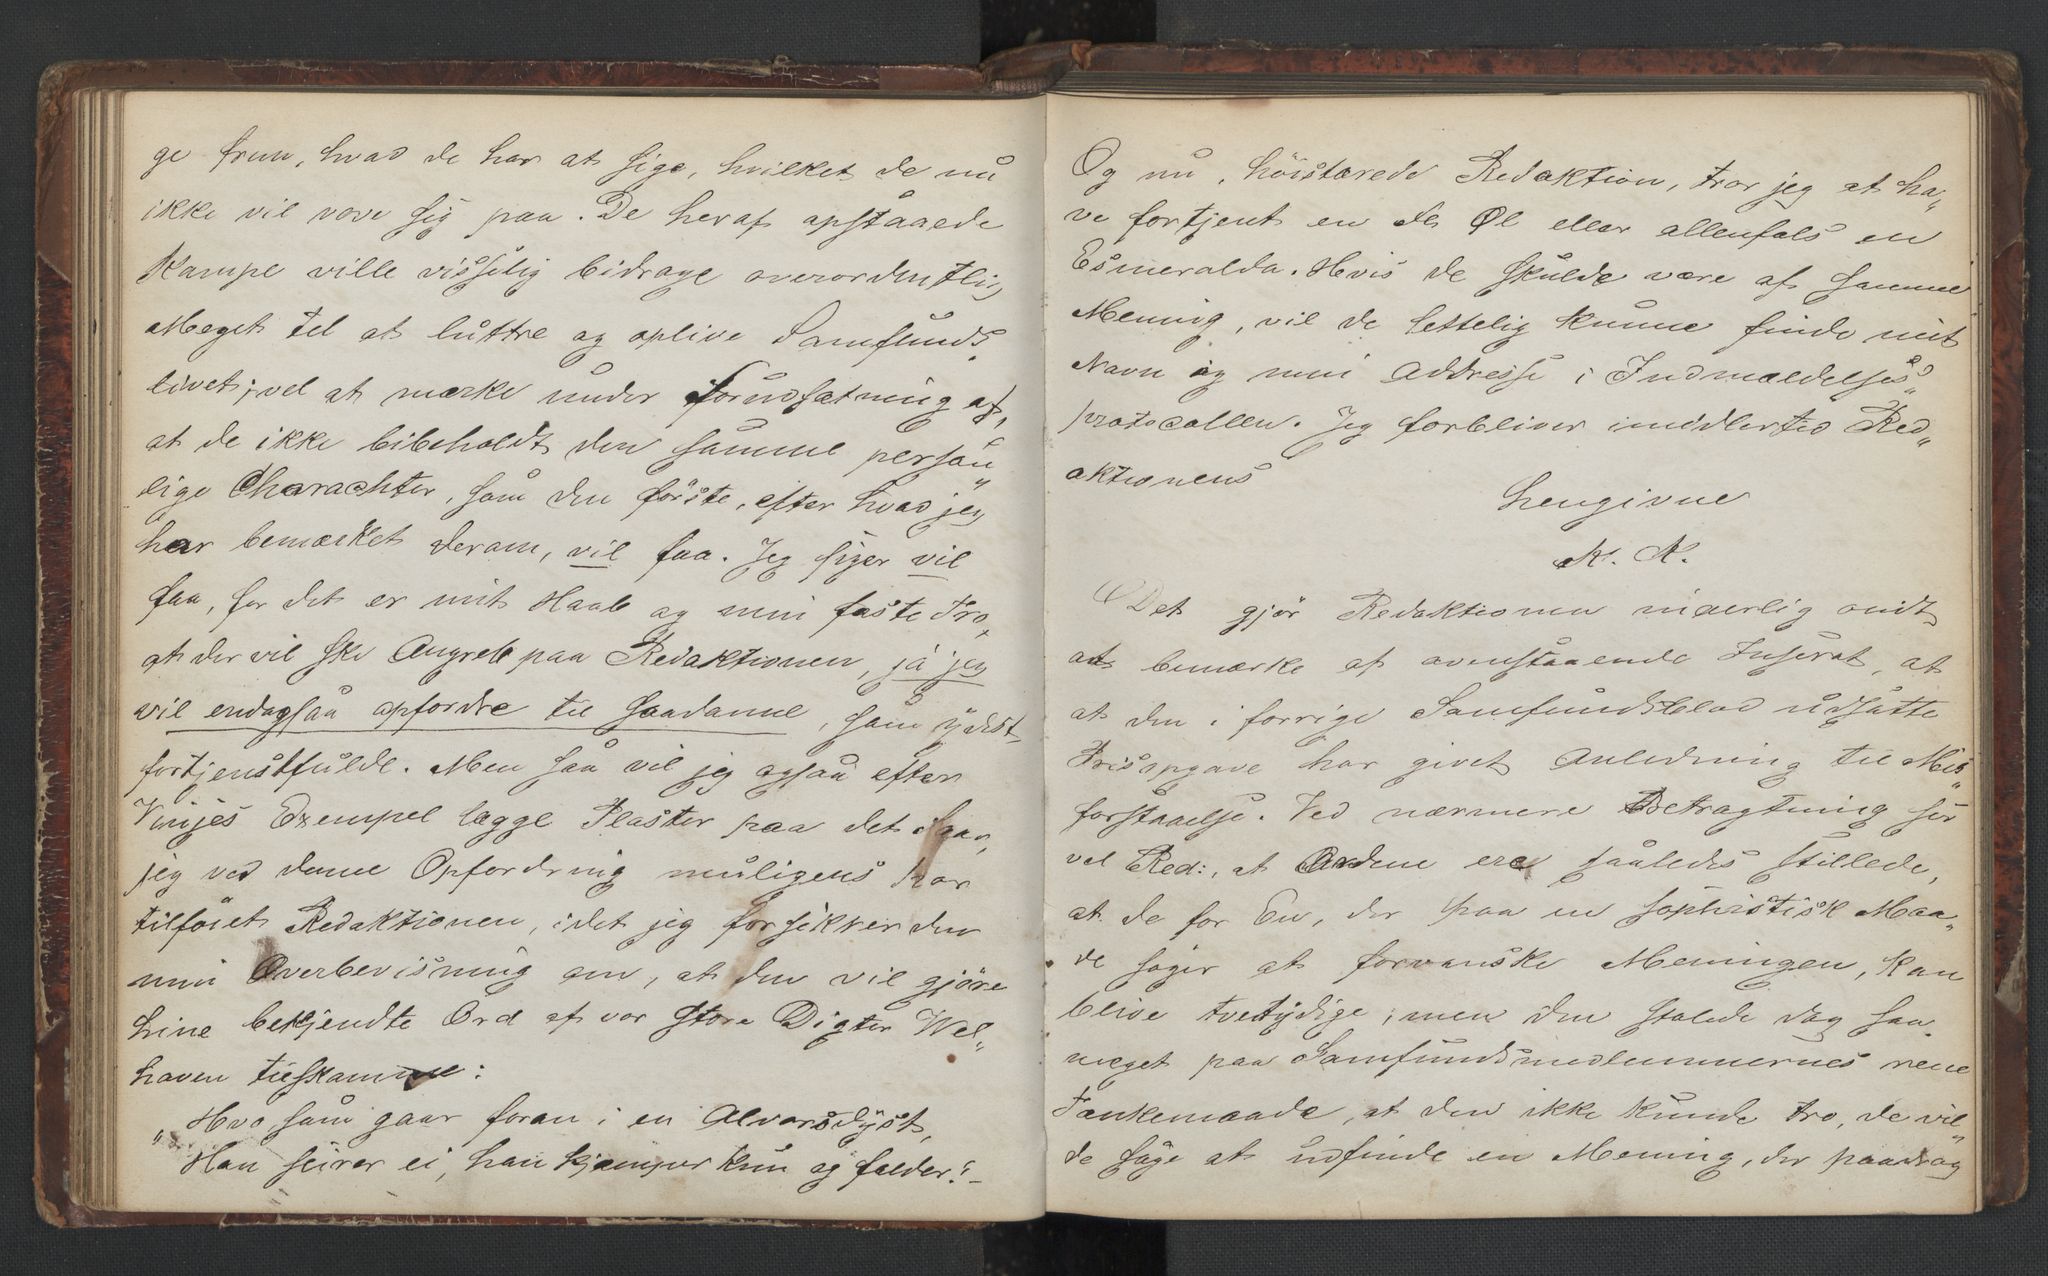 ge frem, hvad de har at sige, hvilket de nu
ikke vil vove sig paa. De heraf opstaaede
Kampe ville visselig bidrage overordentlig
Meget til at luttre og oplive Samfunds„
livet; vel at mærke under Forudsætning af,
at de ikke bibeholdt den samme person„
lige Charachter, som den første, efter hvad jeg
har bemærket derom, vil faa. Jeg siger vil
faa, for det er mit Haab og min faste Tro,
at der vil ske Angreb paa Redaktionen, ja jeg
vil endogsaa opfordre til saadanne, som yderst
fortjenstfulde. Men saa vil jeg ogsaa efter
Vinjes Exempel lægge Plaster paa det Saar,
jeg ved denne Opfordring muligens har
tilføiet Redaktionen, idet jeg forsikrer den
min Overbevisning om, at den vil gjøre
hine bekjendte Ord af vor store Digter Wel„
haven tilskamme:
„Hvo som gaar foran i en Alvorsdyst,
Han seirer ei, han kjæmper kun og falder!“
Og nu, høistærede Redaktion, tror jeg at ha„
ve fortjent en Øl eller allenfals en
Esmeralda. Hvis de skulde være af samme
Mening, vil de lettelig kunne finde mit
Navn og min Addresse i Indmældelses„
protocollen. Jeg forbliver imidlertid Red„
aktionens
hengivne
N. N.
Det gjør Redaktionen inderlig ondt
at bemærke af ovenstaaende Inserat, at
at den i forrige Samfundsblad udsatte
Prisopgave har givet Anledning til Mis„
forstaaelse. Ved nærmere Betragtning ser
vel Red:, at Ordene ere saaledes stillede,
at de for En, der paa en sophistisk Maa„
de søger at forvanske Meningen, kan
blive tvetydige, men den stolede dog saa
meget paa Samfundsmedlemmernes rene
Tankemaade, at den ikke kunde tro, de vil„
de søge at udfinde en Mening, der paadrog